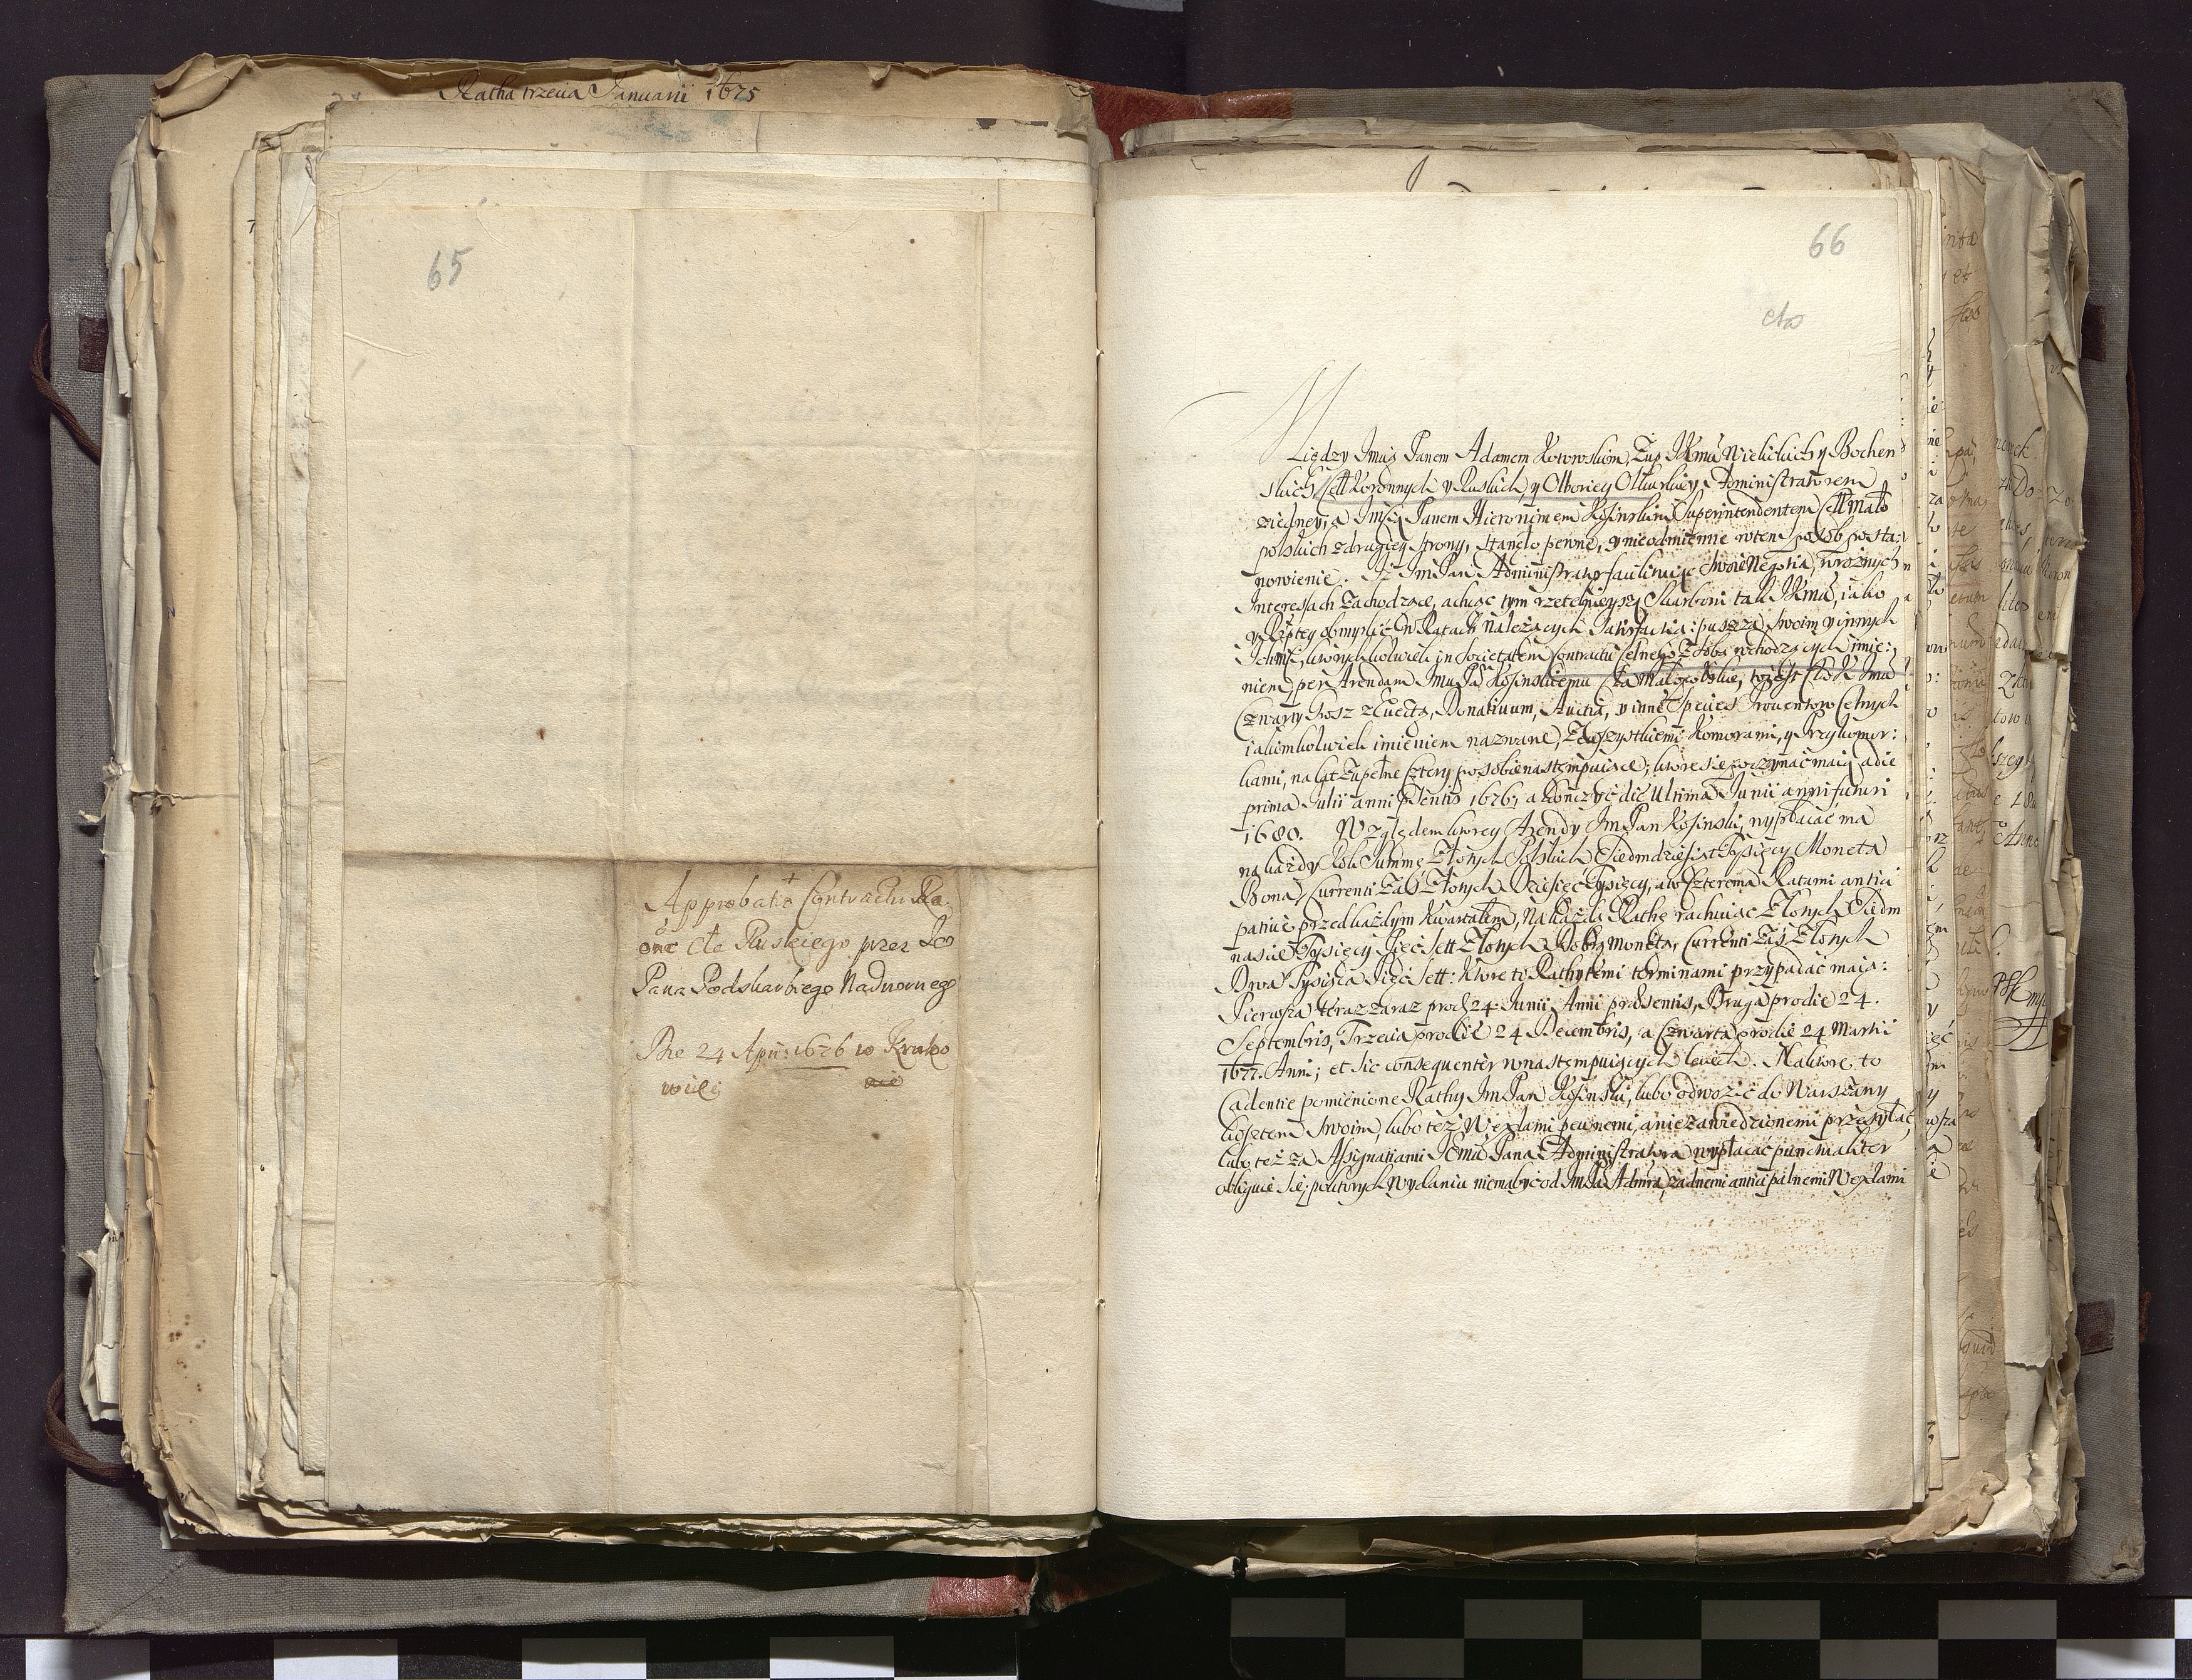 Ratha trzecia Januarii 1675
65
Approbatia Contractu
cła Ruskiego przez
Pana Podskarbiego Nadwornego
Die 24 1676 w Krako
wie
66
cła
Między Jmcią Panem Adamem Kotowskim, Żup JKMci Wielickich y Bochen
skich, Cell Koronnych y Ruskich, y Olborey Olkuskiey Administratorem
z iedney, a Jmcią Panem Hieronimem Kosinskim Superintendentem Cell Mało
polskich z drugiey strony, stanęło pewne, y nieodmienne w ten sposob posta:
nowienie. Iż Jm Pan Administrator facilituiąc swoie Negotia, w roznych
Interessach zachodzące, a chcąc tym rzetelnieyszą Skarbowi tak JKMci, iako
y Rzptey obmyslić w Ratach należących Satisfactią: puszcza swoim y innych
Ichmć, ktorychkolwiek in Societatem Contractu Celnego z sobą wchodzących imie:
niem, per Arendam Jmu Pu Kosinskiemu Cła Małopolskie, to iest Cło
Czwarty Grosz z Evecta, Donativum, Auctia, y inne Species Proventow Celnych
iakimkolwiek imieniem nazwane, z wszystkiemi Komorami, y Przykomor:
kami, na lat zupełne cztery po sobie nastempuiące; ktore się poczynać maią a die
prima Julii anni pntis 1676, a kończyć die ultima Junii anni futuri
1680. Względem ktorey Arendy Jm Pan Kosinski, wypłacać ma
na każdy Rok Summę Złotych Polskich Siedmdziesiąt Tysięcy Moneta
Bona, Currenti zaś Złotych Dziesięć Tysięcy, a to Czterema Ratami antici
pative przed każdym Kwartałem, na każdą Rathę rachuiąc Złotych Siedm
nascie Tysięcy Pięć sett Złotych Dobrą Monetą, Currenti zaś Złotych
Dwa Tysiąca Pięć sett: Ktore to Rathy temi terminami przypadać maią:
Pierwsza teraz zaraz pro die 24 Junii Anni praesentis, Druga pro die 24.
Septembris, Trzecia pro die 24 Decembris, a Czwarta pro die 24 Martii
1677. Anni; et sic consequenter w nastempuiących leciech. Na ktore to
Cadentie pomienione Rathy Jm Pan Kosinski, lubo odwozić do Warszawy
kosztem swoim, lubo też Wexlami pewnemi, a niezawiedzionemi przesyłać,
lubo też za Assignatiami Jcmci Pana Administratora wypłacać punctualiter
obliguie się, po ktorych wydaniu niema być od Jm Pa Admra, żadnemi anticipalnemi Wexlami